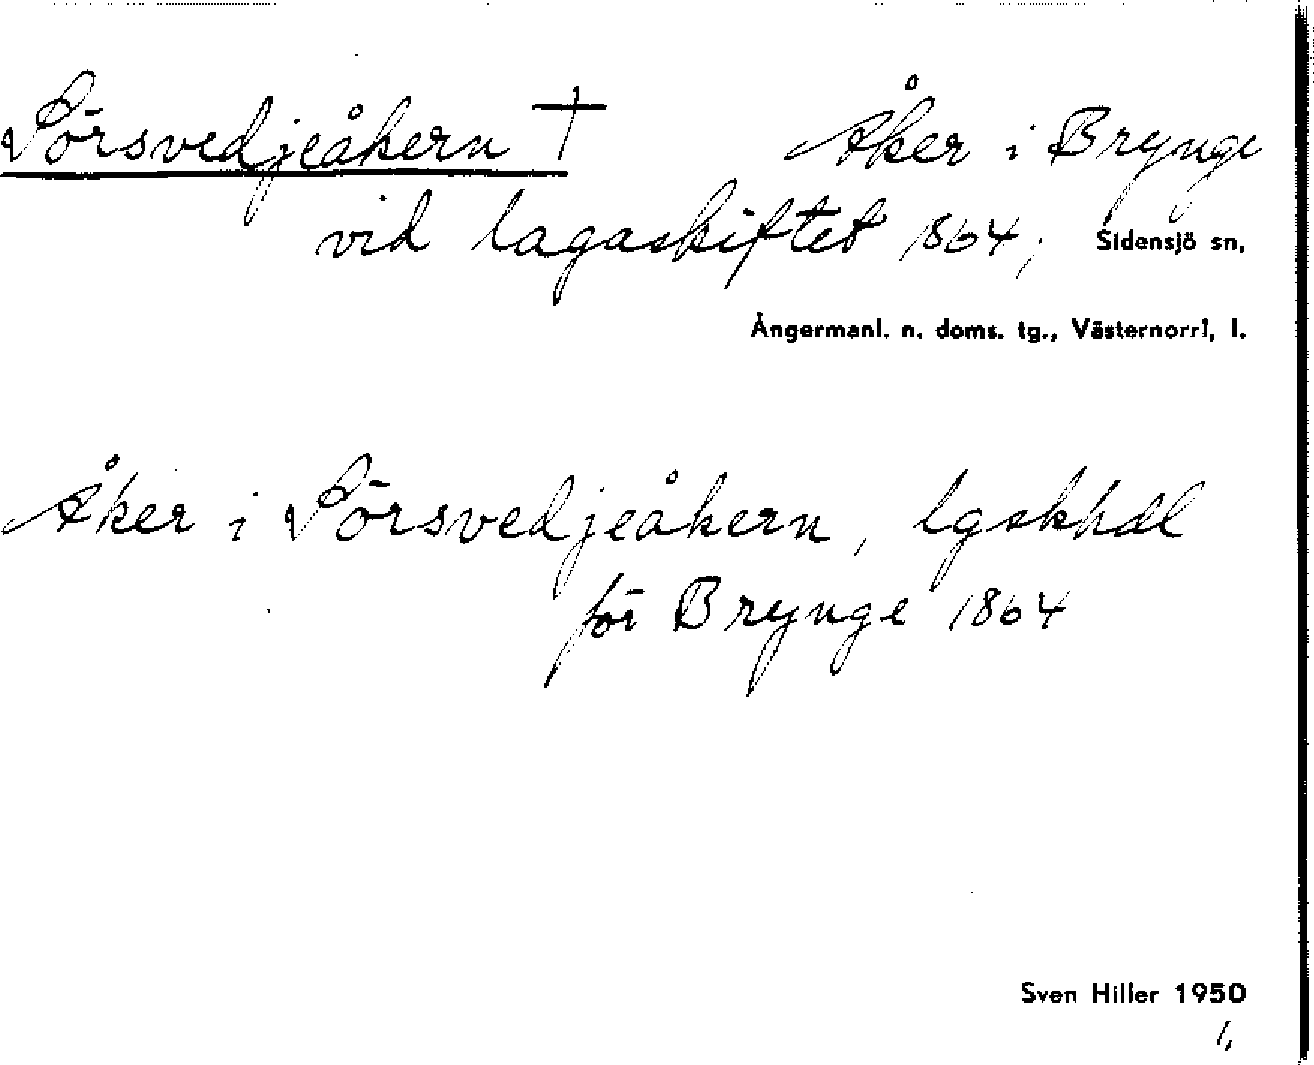 Sörsvedjeåkern † Åker i Brynge
vid lagaskiftet 1864; Sidensjö sn,
Ångermanl. n. doms. tg., Västernorrl, l.
Åker i Sörsvedjeåkern, lgskhdl
för Brynge 1864
Sven Hiller 1950